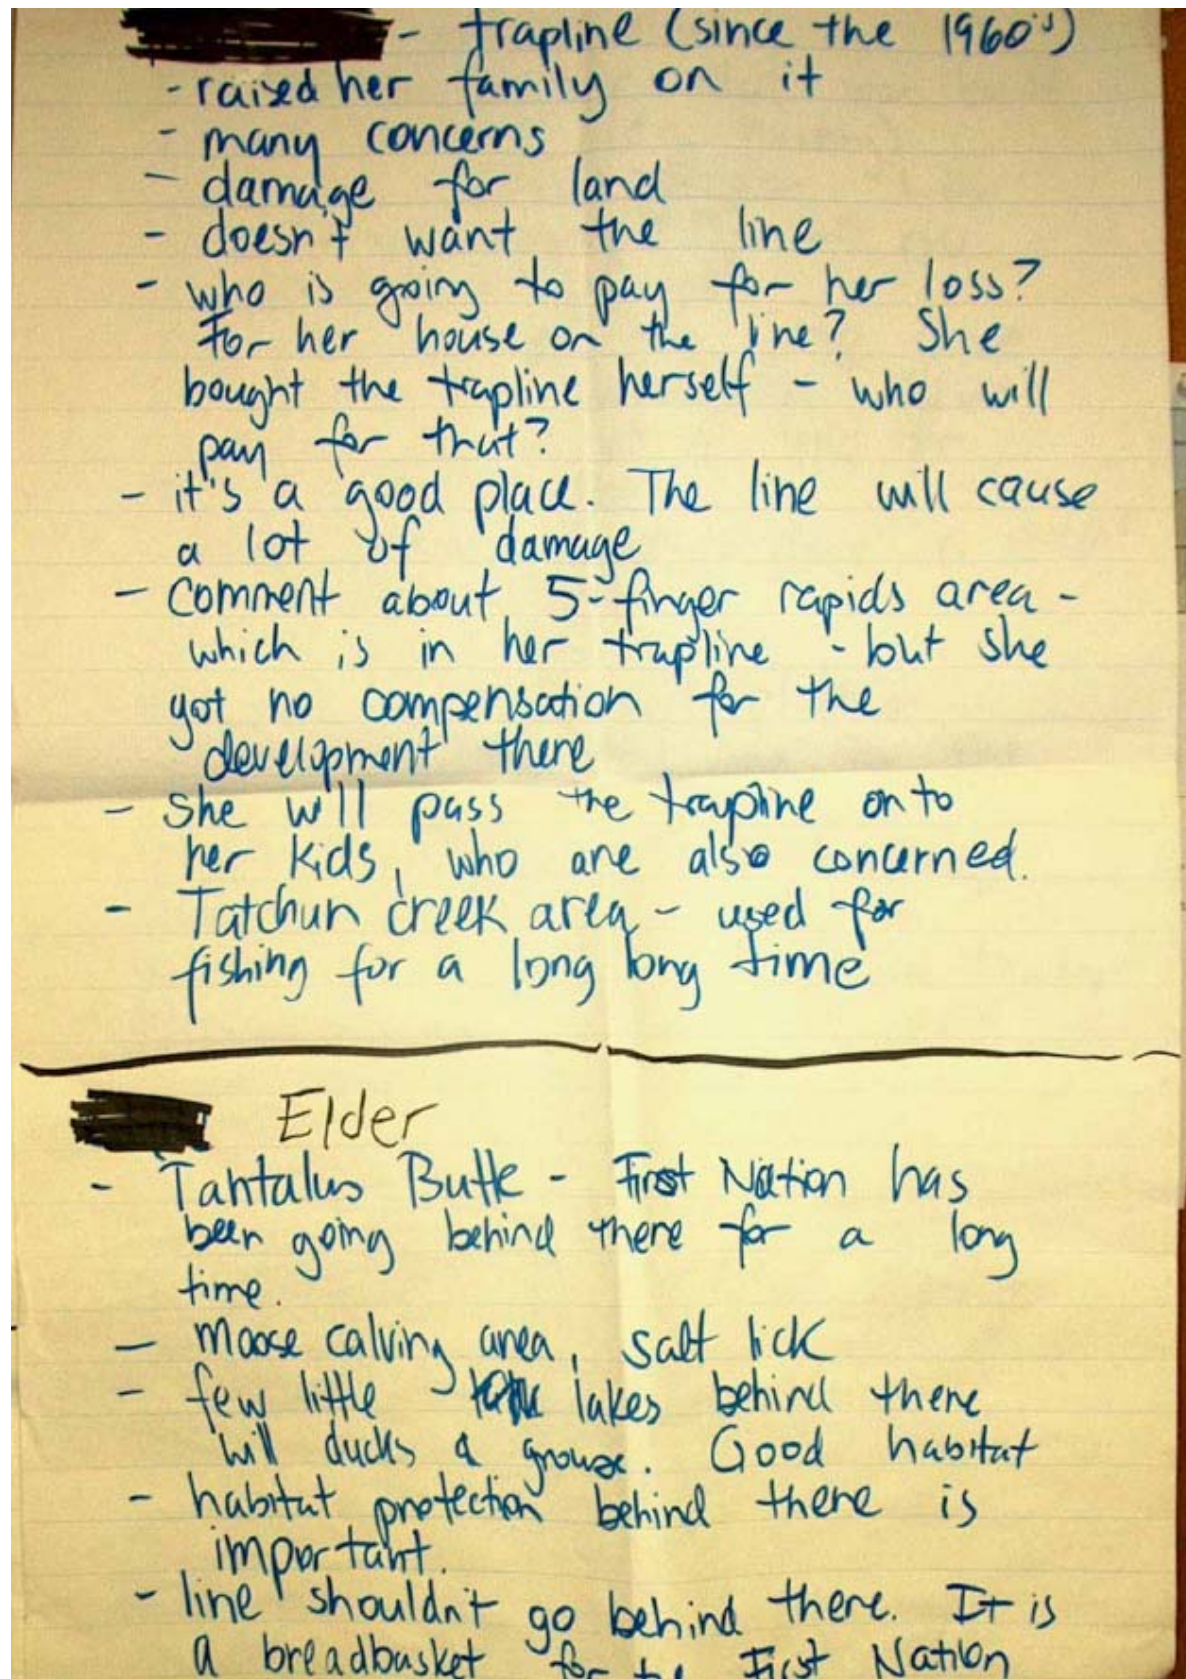 - trapline (since the 1960's)
- raised her family on it
- many concerns
- damage for land
- doesn't want the line
- who is going to pay for her loss?
For her house on the line? She
bought the trapline herself - who will
pay for that?
- it's a good place. The line will cause
a lot of damage
- Comment about 5-finger rapids area -
which is in her trapline - but she
got no compensation for the
development there
- She will pass the trapline on to
her kids, who are also concerned.
- Tatchun creek area - used for
fishing for a long long time
Elder
- Tantalus Butte - First Nation has
been going behind there for a long
time.
- moose calving area, salt lick
- few little lakes behind there
will ducks & grouse. Good habitat
- habitat protection behind there is
important.
- line shouldn't go behind there. It is
a breadbasket for the First Nation